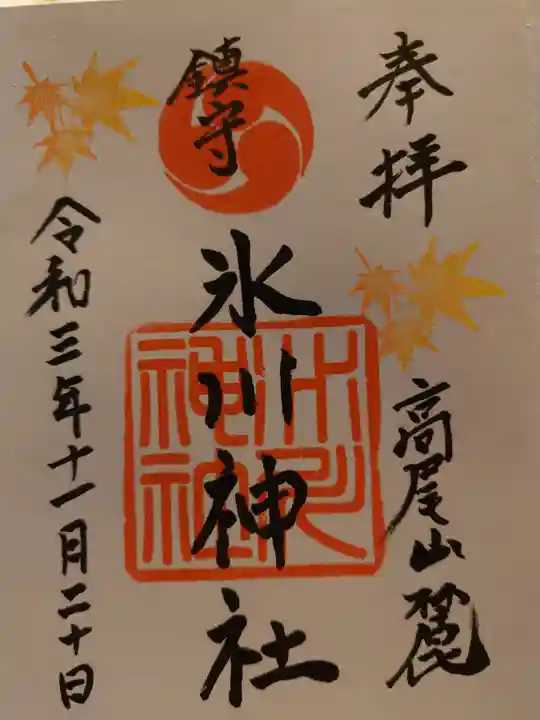 奉拝
高尾山麓
鎮守
氷川神社
氷川
神社
令和三年十一月二十日